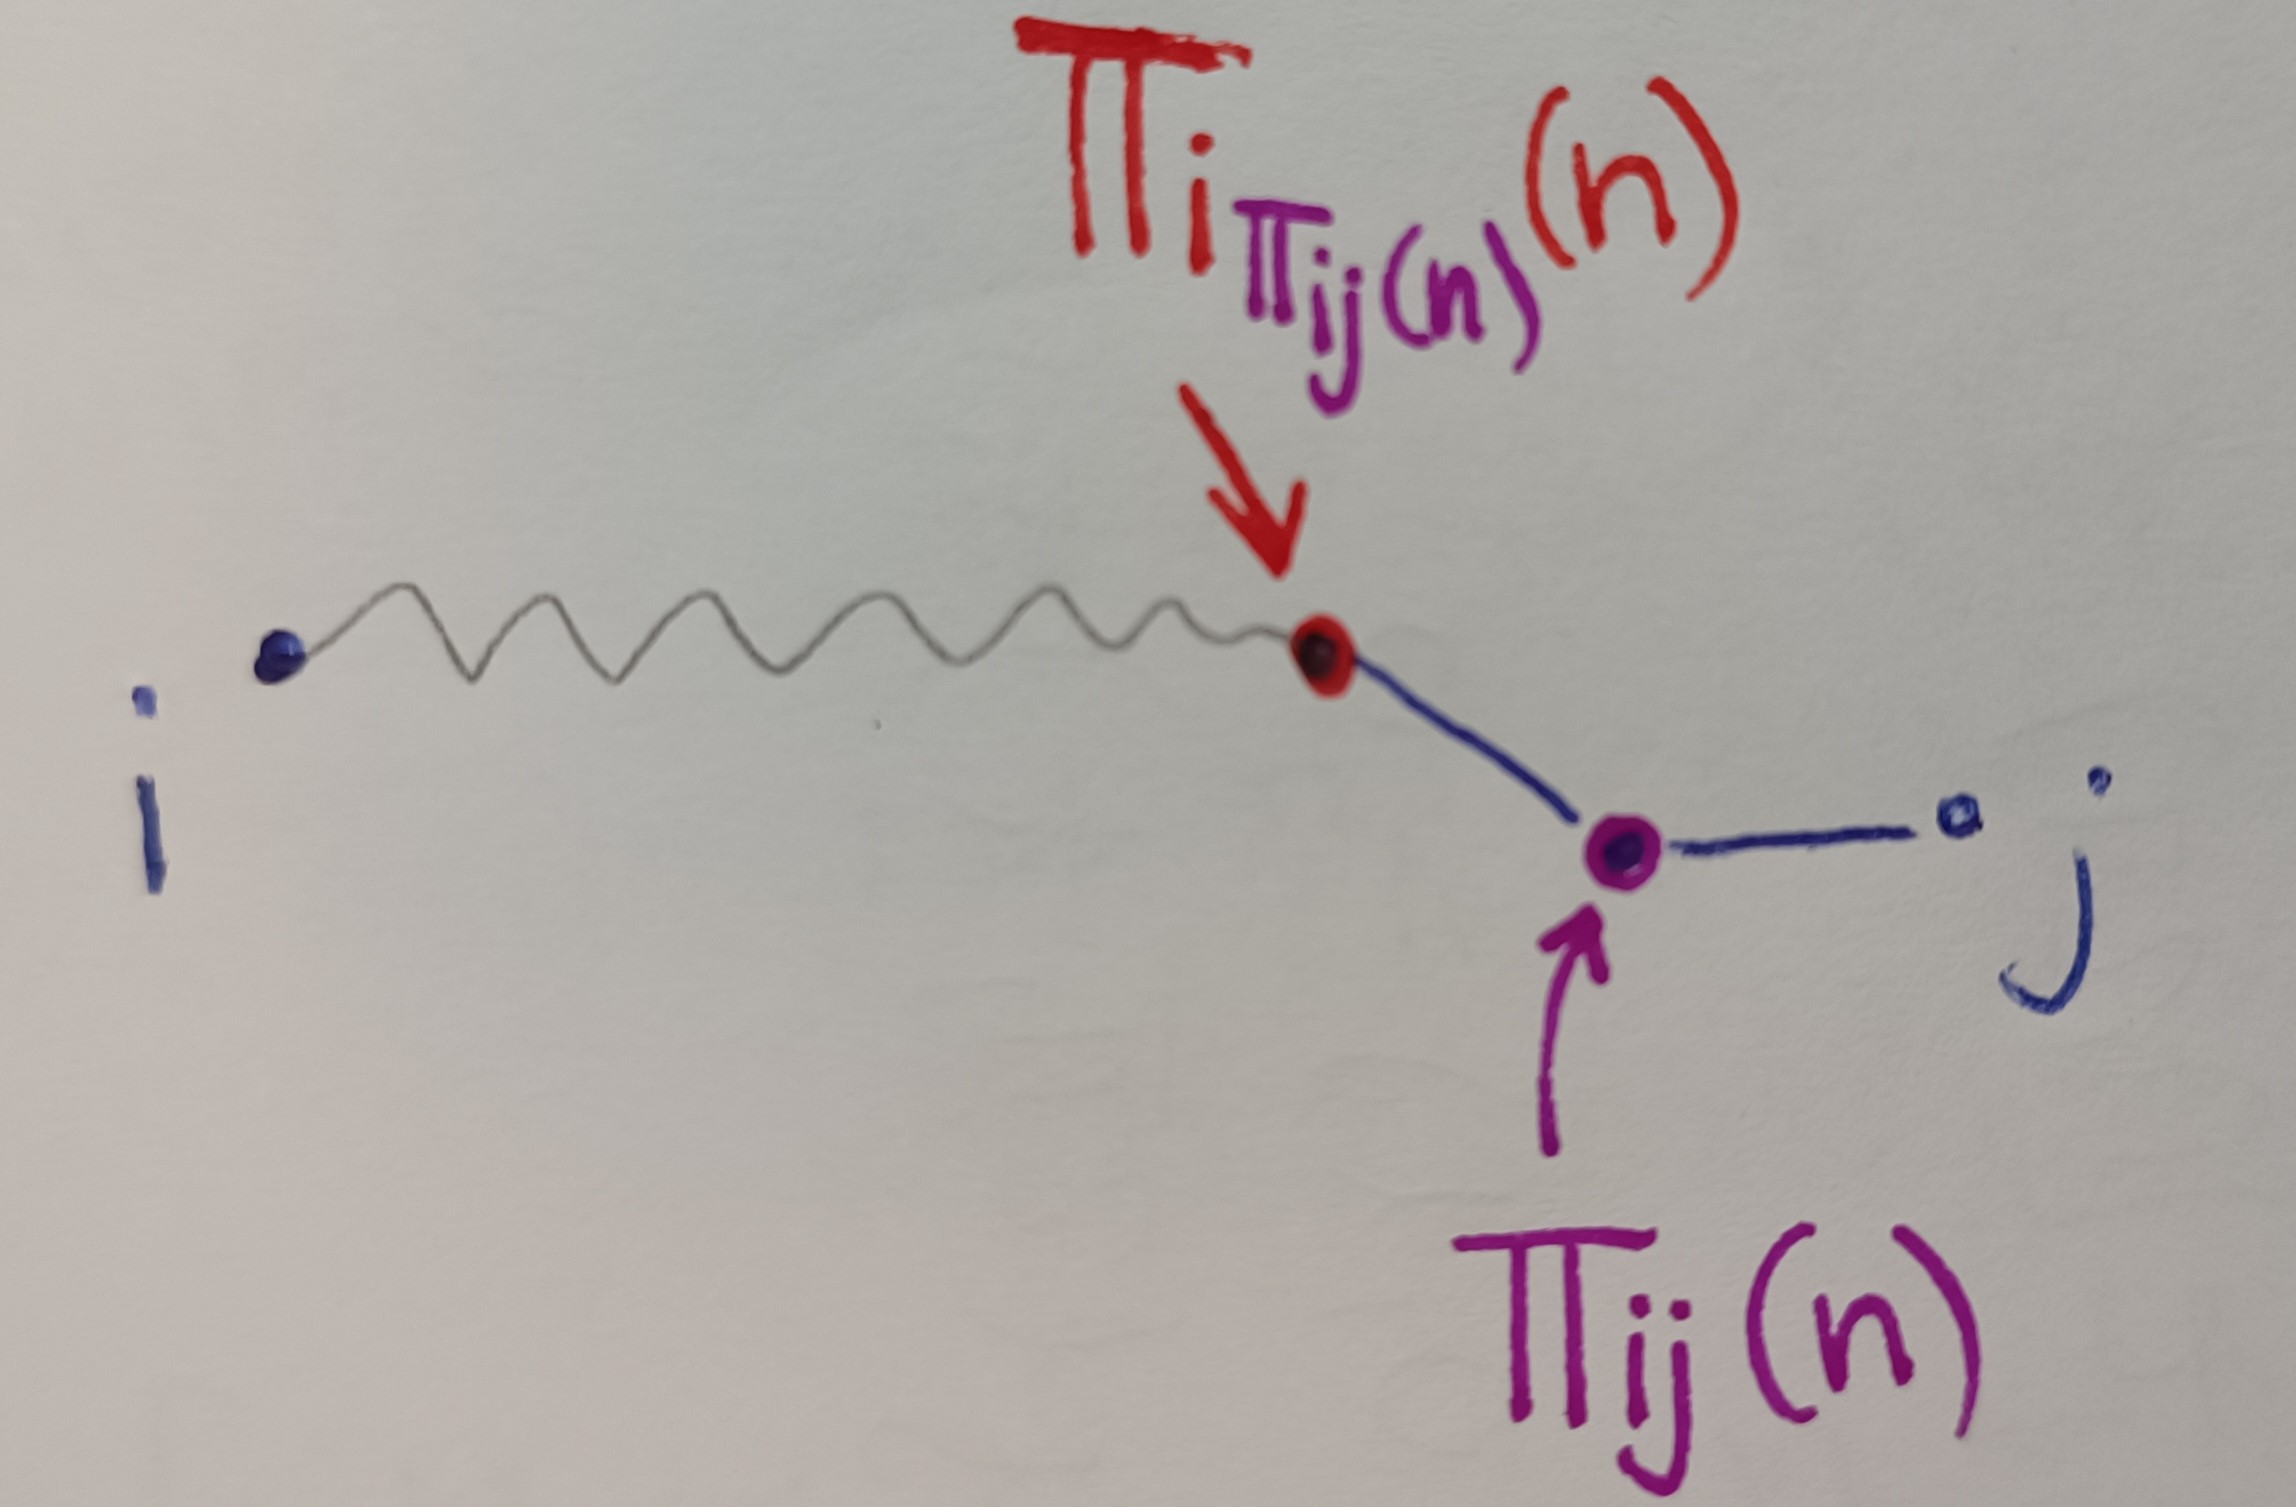 πiπij(n)(n)
i
j
πij(n)